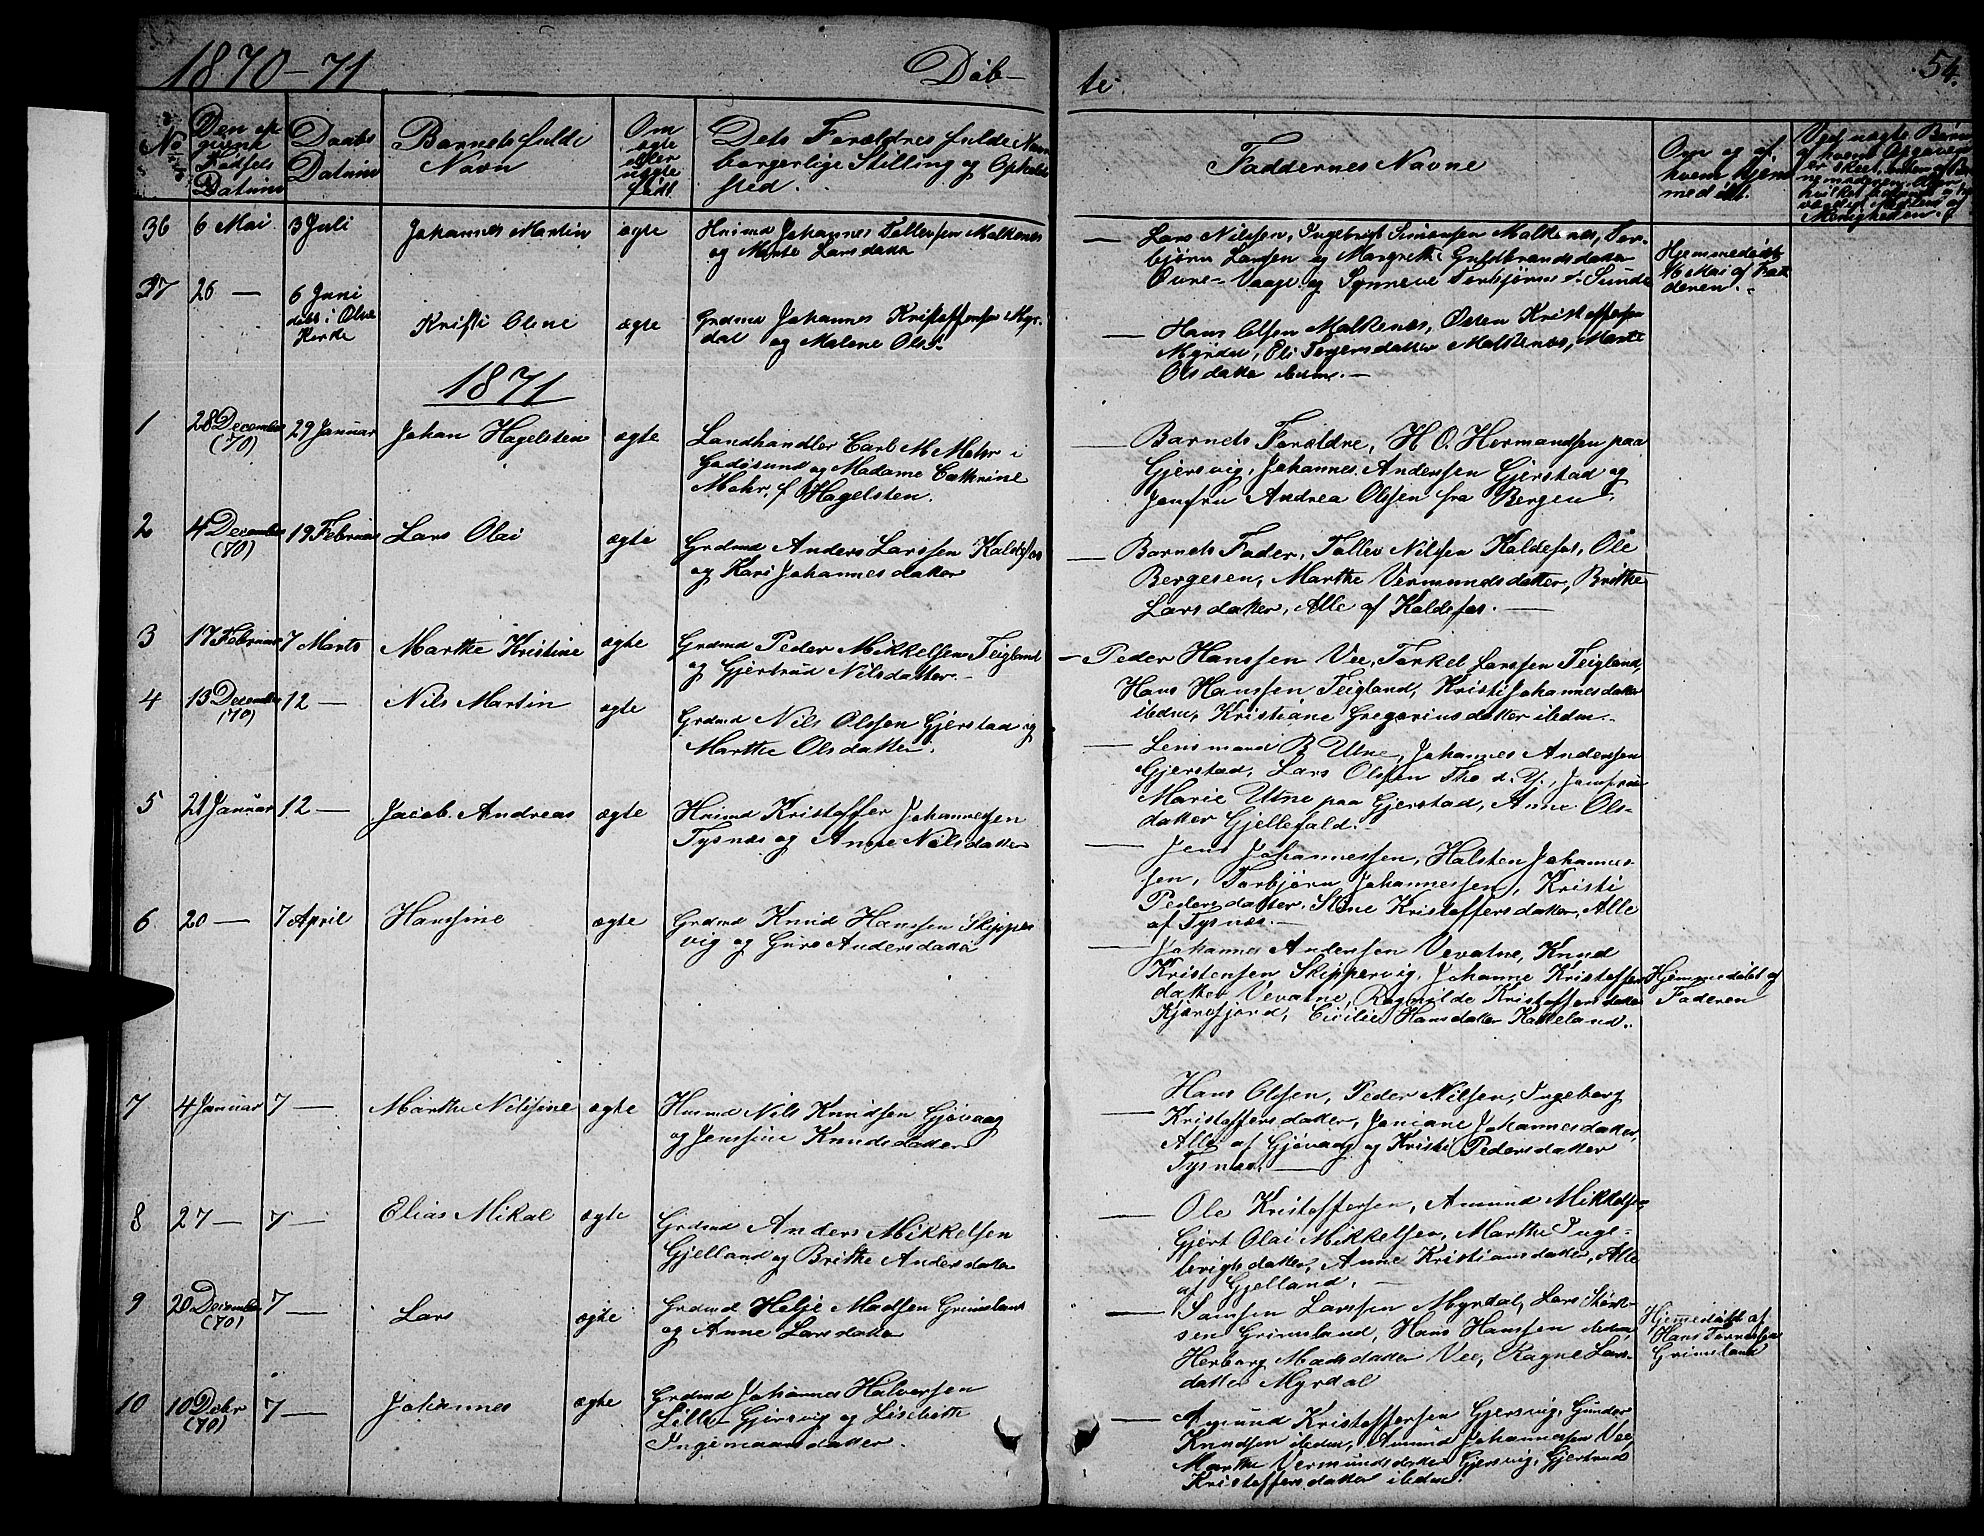 1870-71
Døb-
te
54.
No
Den op
givne
Fødsels
Datum
Daabs
Datum
Barnets fulde
Navn
Om
ægte
eller
uægte
født
Dets Forældres fulde Navn
borgerlige Stilling og Opholds
sted.
Faddernes Navne
Om og af
hvem hjem
med
36 6 Mai 3 Juli Johannes Martin ægte
Husmd Johannes Tollevsen Malkenes
og Marte Larsdatter
Lars Nilssen, Ingebrigt Simonsen Malkenes, Tor-
bjørn Larsen og Margrethe Guldbrandsdatter
Øvre-Vaage og Synneve Torbjørns d. Sunde
Hjemmedøbt
16 Mai af Fa-
deren.
37 26 — 6 Juni
døbt i Ølve
Kirke
Kristi Oline ægte
Grdmd Johannes Kristoffersen Myr-
dal og Malene Olsd.
Hans Olsen Malkenes, Østen Kristoffersen
Myrdal, Eli Torgersdatter Malkenes, Marte
Olsdatter ibidm.
1871
1 28 December
(70)
29 Januar Johan Hagelsten ægte
Landhandler Carl M. Mohr i
Godøsund og Madame Cathrine
Mohr, f Hagelsten.
Barnets Forældre, H. O. Hermandsen paa
Gjersvig, Johannes Anderssen Gjerstad og
Jomfru Andrea Olssen fra Bergen.
2 4 December
(70)
19 Februar Lars Olai ægte
Grdmd Anders Larssen Kaldefos
og Kari Johannesdatter
Barnets Fader, Tollev Nilssen Kaldefos, Ole
Bergesen, Marthe Vermundsdatter, Brithe
Larsdatter, Alle af Kaldefos.
3 17 Februar 7 Marts Marthe Kristine ægte
Grdmd Peder Mikkelsen Teigland
og Gjertrud Nilsdatter.
Peder Hanssen Vee, Torkel Larssen Teigland,
Hans Hanssen Teigland, Kristi Johannesdatter
ibidm, Kristiane Gregoriusdatter ibidm.
4 13 December
(70)
12 — Nils Martin ægte
Grdmd Nils Olssen Gjerstad og
Marthe Olsdatter.
Lensmand B. Utne, Johannes Anderssen
Gjerstad, Lars Olssen Thø d. Y., Jomfru
Marie Utne paa Gjerstad, Anne Ols-
datter Gjellefald.
5 21 Januar 12 — Jacob Andreas ægte
Husmd Kristoffer Johannessen
Tysnæs og Anne Nilsdatter
Jens Johannessen, Halsten Johannes-
sen, Torbjørn Johannessen, Kristi
Pedersdatter, Stine Kristoffersdatter, Alle
af Tysnæs.
6 20 — 7 April Hanssine ægte
Grdmd Knud Hanssen Skipper
vig og Guro Andersdatter
Johannes Anderssen Vevatne, Knud
Kristensen Skippervig, Johanne Kristoffers
datter Vevatne, Ragnilde Kristoffersdatter
Kjørefjord, Cicilie Hansdatter Kakeland.
Hjemmedøbt af
Faderen
7 4 Januar 7 — Marthe Nilssine ægte
Husmd Nils Knudsen Gjøvaag
og Jenssine Knudsdatter
Hans Olssen, Peder Nilssen, Ingeborg
Kristoffersdatter, Janiane Johannesdatter,
Alle af Gjøvaag og Kristi Pedersdatter
Tysnæs.
8 27 — 7 — Elias Mikal ægte
Grdmd Anders Mikkelsen
Gjelland og Brithe Andersdatter
Ole Kristoffersen, Amund Mikkelsen
Gjert Olai Mikkelsen, Marthe Inge-
brigtsdatter, Anne Kristiansdatter, Alle
af Gjelland.
9 20 December
(70)
7 — Lars ægte
Grdmd Helje Madssen Grimsland
og Anne Larsdatter
Samsen Larssen Myrdal, Lars
sen Grimsland, Hans Hanssen ibidm,
Herborg Madsdatter Vee, Ragne Lars-
datter Myrdal
Hjemmedøbt af
Hans
Grimsland
10 10 Decbr
(70)
7 — Johannes ægte
Grdmd Johannes Halversen
Lille-Gjersvig og Lisebeth
Ingemaarsdatter.
Amund Kristoffersen Gjersvig, Gunder
Knudsen ibidm, Amund Johannessen Vee,
Marthe Vermundsdatter Gjersvig, Gjertrud
Kristoffersdatter ibidm.